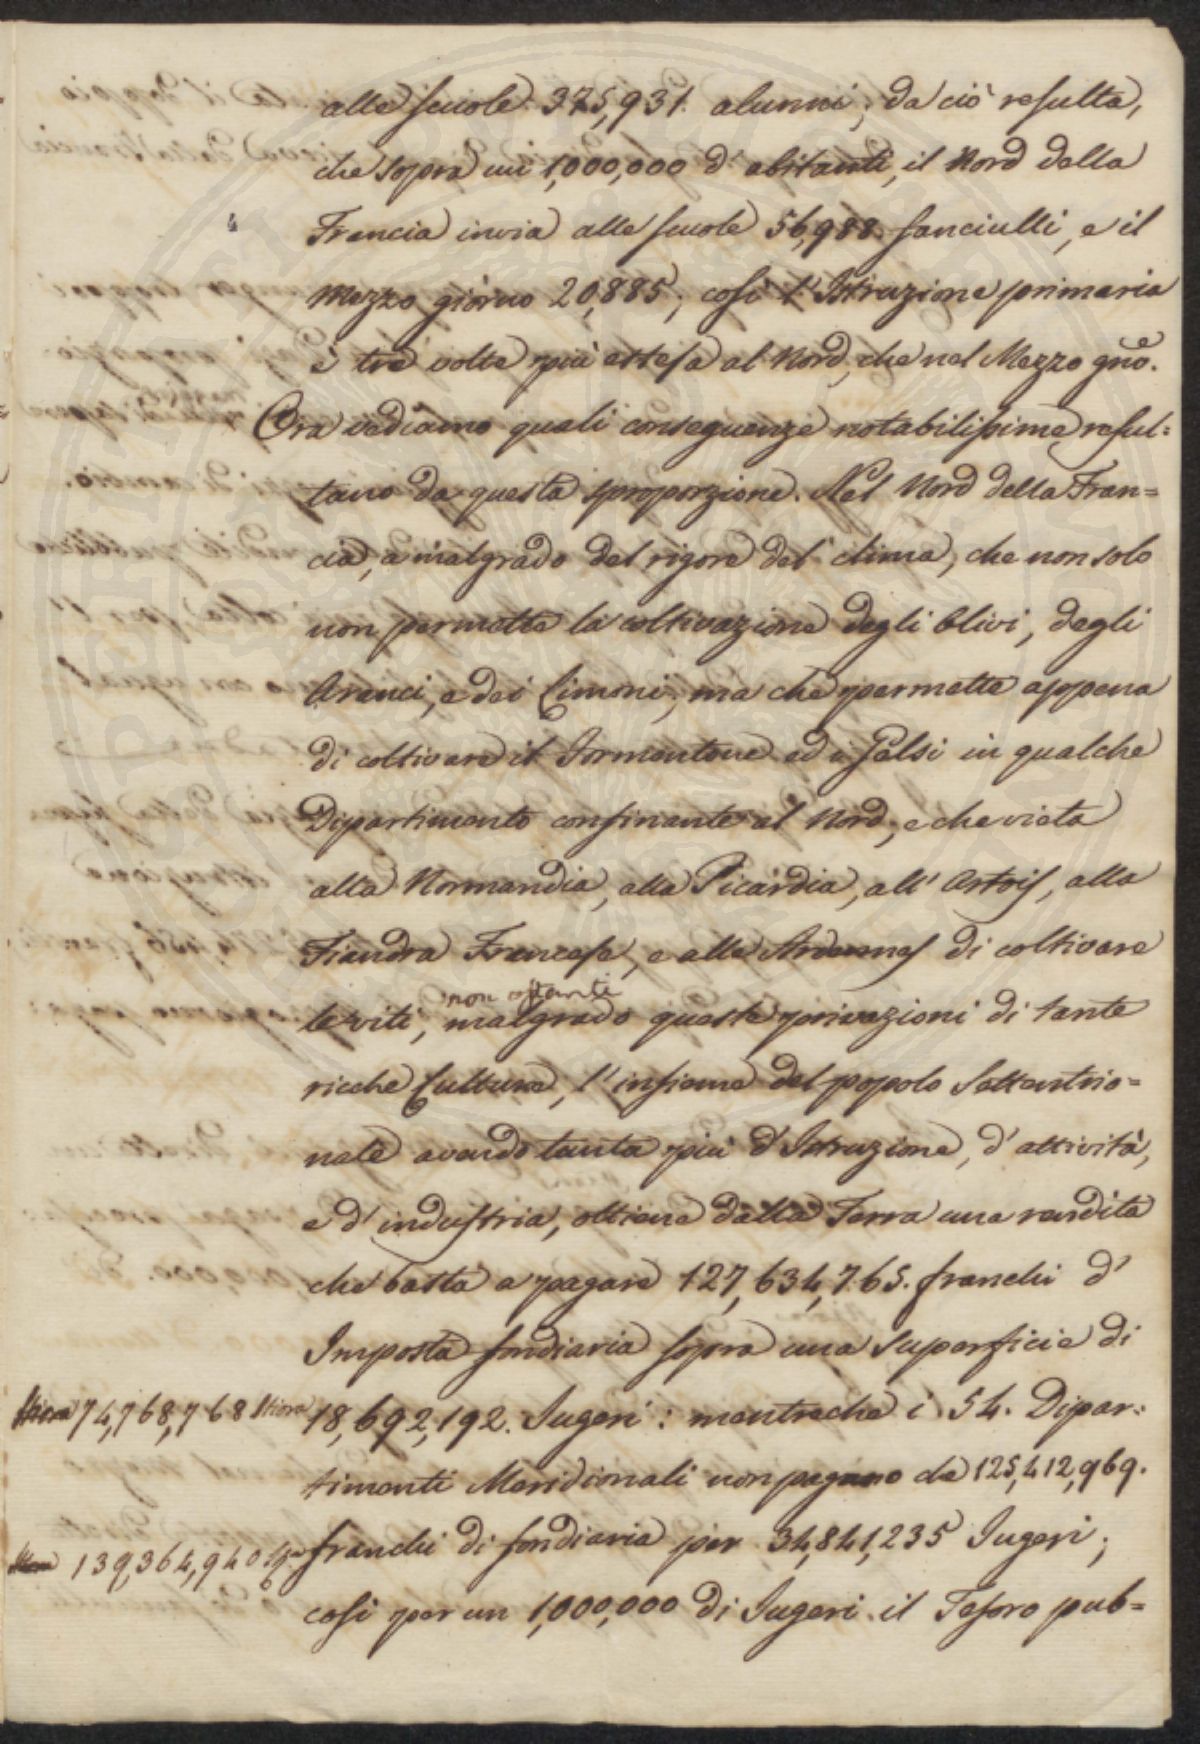 alle scuole 375,931. alunni; da ciò resulta,
che sopra un 1,000,000 d'abitanti, il Nord della
Francia invia alle scuole 56,988. fanciulli, e il
Mezzo giorno 20,885; così l'Istruzione primaria
è tre volte più estesa al Nord, che nel Mezzo gno.
Ora vediamo quali conseguenze notabilissime resul=
tano da questa sproporzione. Nel Nord della Fran=
cia, a malgrado del rigore del clima, che non solo
non permette la coltivazione degli Olivi, degli
Aranci, e dei Limoni, ma che permette appena
di coltivare il Formentone ed i Gelsi in qualche
Dipartimento confinante al Nord, e che vieta
alla Normandia, alla Picardia, all'Artois, alla
Fiandra Francese, e alle Ardennes di coltivare
non ostante
le viti, malgrado queste privazioni di tante
ricche Culture, l'insieme del popolo Settentrio=
nale avendo tanta più d'Istruzione, d'attività,
e d'industria, ottiene dalla Terra una rendita
che basta a pagare 127,634,765. franchi d'
Imposta fondiaria sopra una superficie di
74,768,768 Stiora 18,692,192. Jugeri: mentreche i 54. Dipar=
timenti Meridionali non pagano che 125,412,969.
139,364,940 franchi di fondiaria per 34,841,235 Jugeri;
così per un 1,000,000 di Jugeri il Tesoro pub=